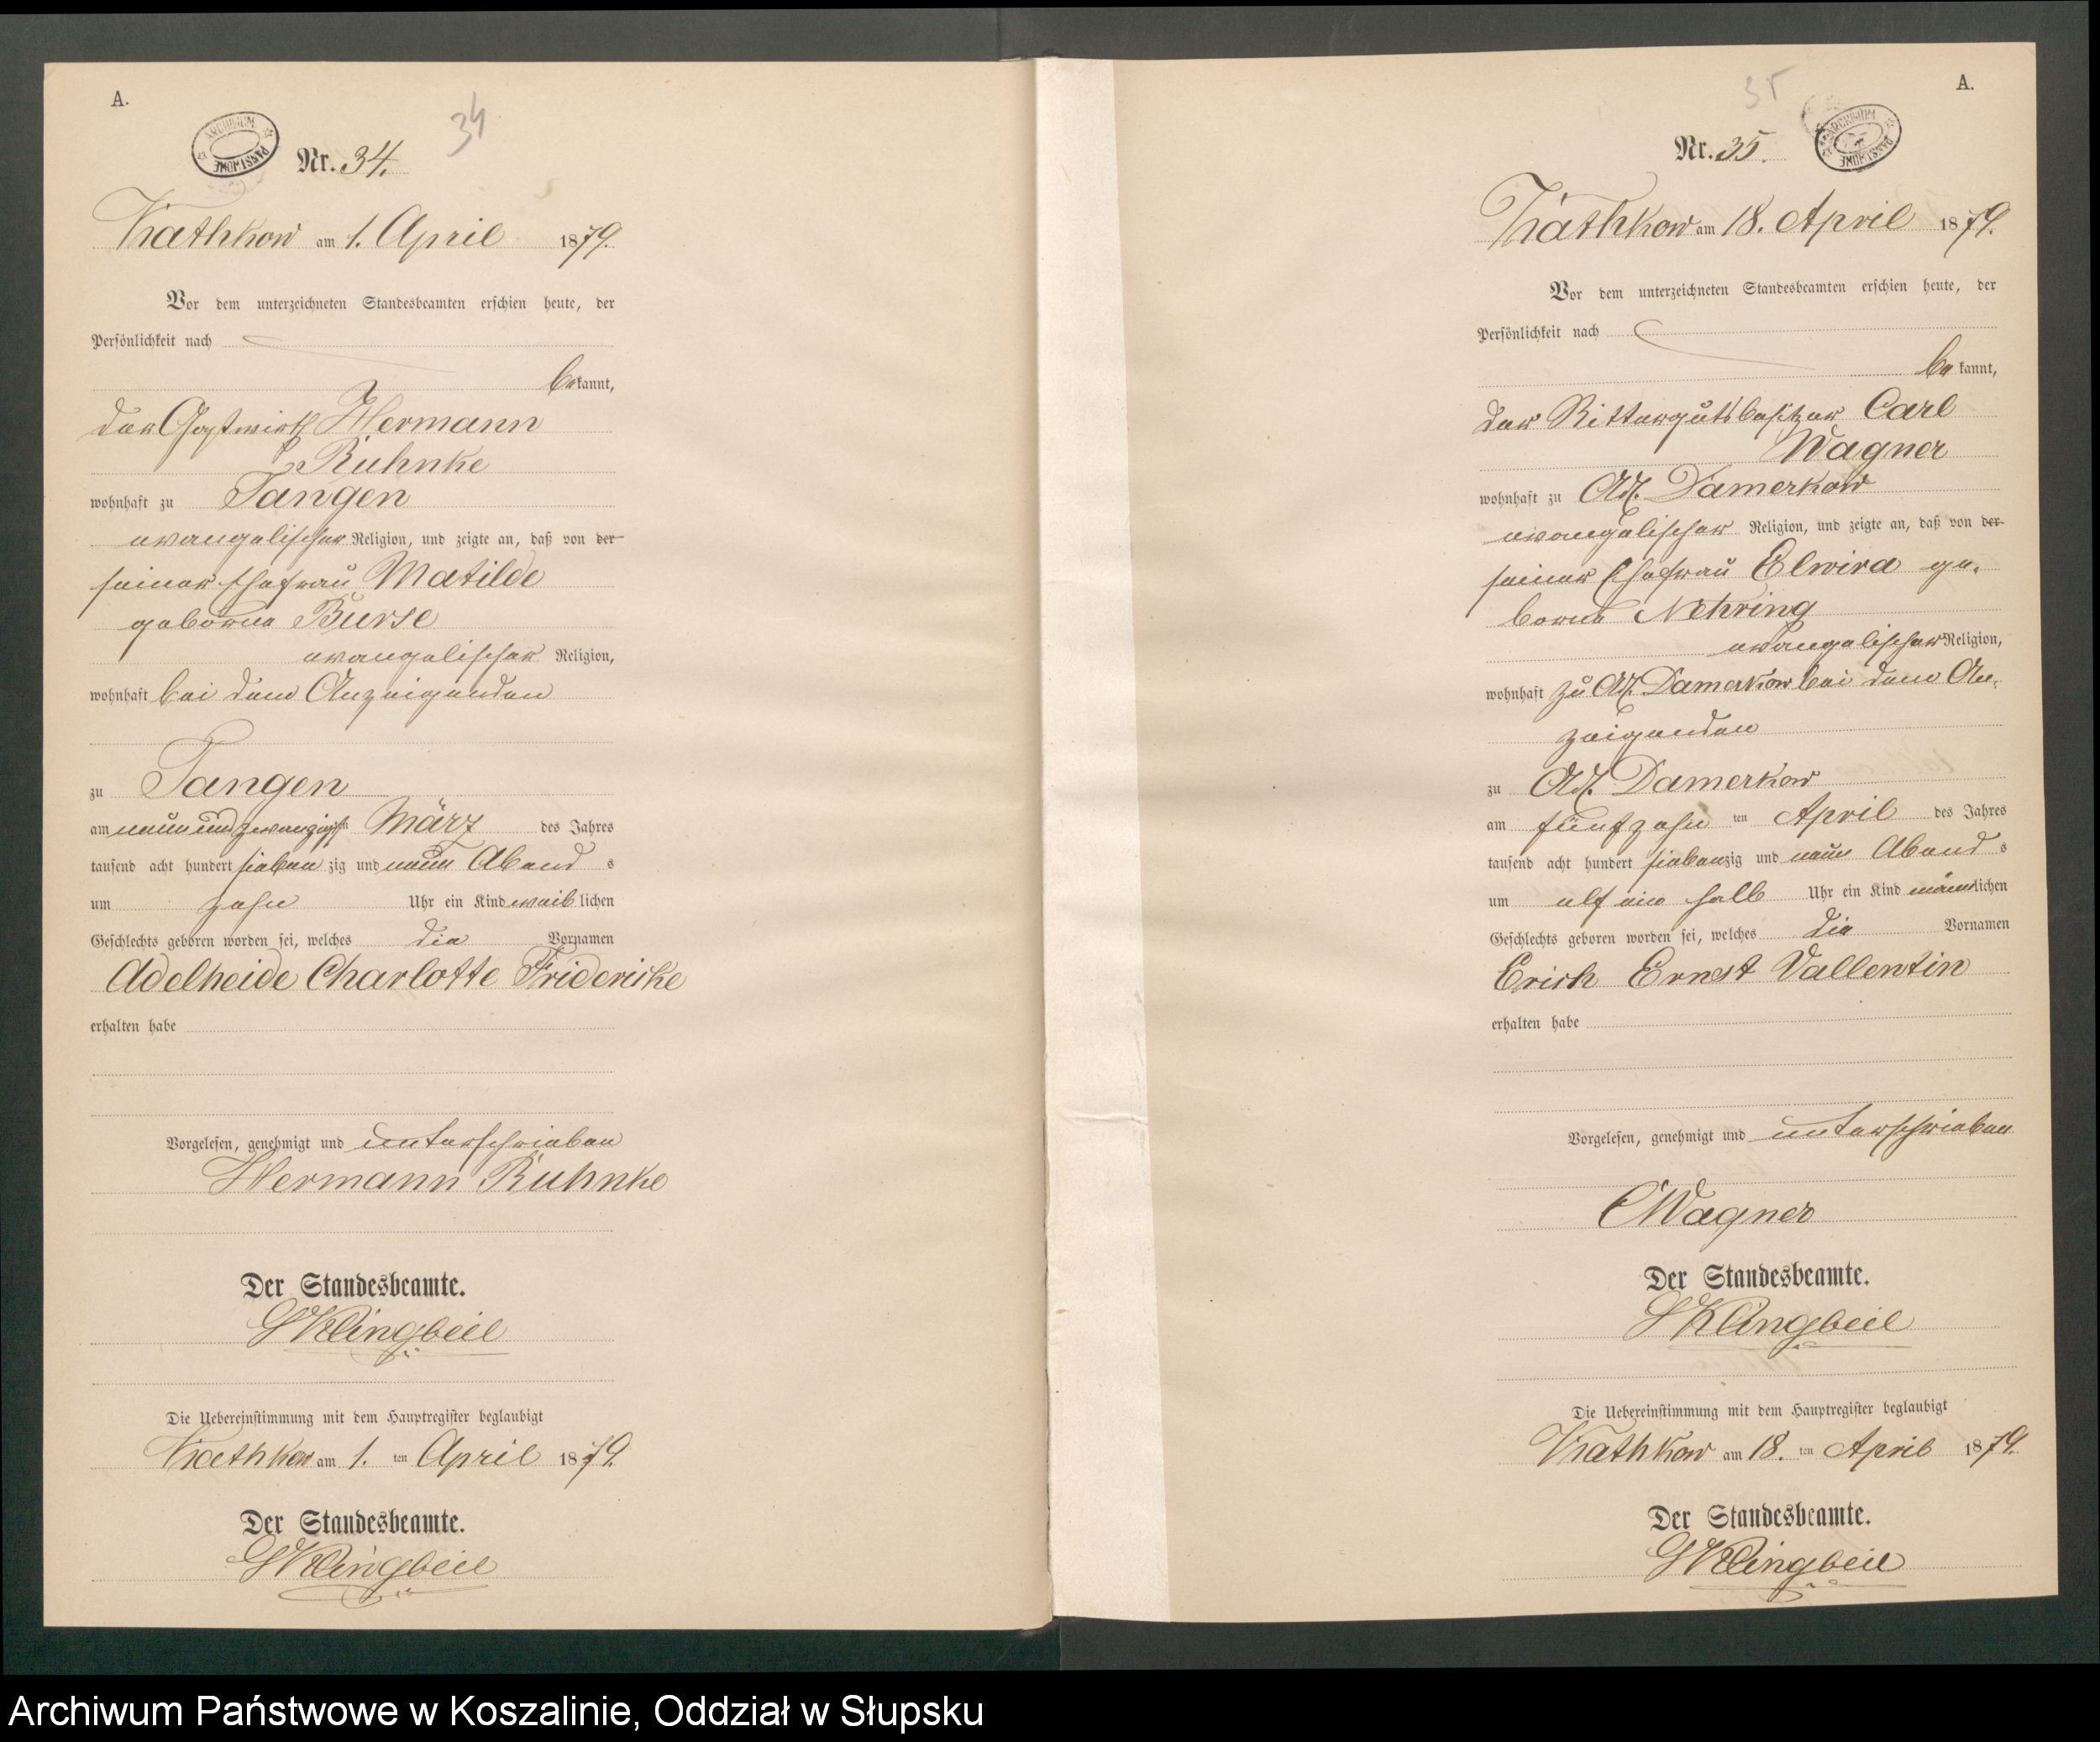 A.
ARCHIWUM PAŃSTWOWE
Nr. 34.
34
Wathkow am 1. April 1879.
Vor dem unterzeichneten Standesbeamten erschien heute, der
Persönlichkeit nach
bekannt,
der Gastwirth Hermann
Ruhnke
wohnhaft zu Tangen
evangelischer Religion, und zeigte an, daß von der
seiner Ehefrau Matilde
geborne Burse
evangelischer Religion,
wohnhaft bei dem Anzeigenden
zu Tangen
am neun und zwanzigsten März des Jahres
tausend acht hundert siebenzig und neun Abends
um zehn Uhr ein Kind weiblichen
Geschlechts geboren worden sei, welches die Vornamen
Adelheide Charlotte Fridericke
erhalten habe
Vorgelesen, genehmigt und unterschrieben
Hermann Ruhnke
Der Standesbeamte.
Klingbeil
Die Uebereinstimmung mit dem Hauptregister beglaubigt
Wathkow am 1. ten April 1879.
Der Standesbeamte.
Klingbeil
A.
35
Nr. 35.
ARCHIWUM PAŃSTWOWE
Wathkow am 18. April 1879.
Vor dem unterzeichneten Standesbeamten erschien heute, der
Persönlichkeit nach
bekannt,
der Rittergutsbesitzer Carl
Wagner
wohnhaft zu Adl. Damerkow
evangelischer Religion, und zeigte an, daß von der
seiner Ehefrau Elwira ge-
borne Nehring
evangelischer Religion,
wohnhaft zu Adl. Damerkow bei dem An-
zeigenden
zu Adl. Damerkow
am fünfzehn ten April des Jahres
tausend acht hundert siebenzig und neun Abends
um elf ein halb Uhr ein Kind männlichen
Geschlechts geboren worden sei, welches die Vornamen
Erich Ernst Vallentin
erhalten habe
Vorgelesen, genehmigt und unterschrieben
C Wagner
Der Standesbeamte.
Klingbeil
Die Uebereinstimmung mit dem Hauptregister beglaubigt
Wathkow am 18. ten April 1879.
Der Standesbeamte.
Klingbeil
Archiwum Państwowe w Koszalinie, Oddział w Słupsku